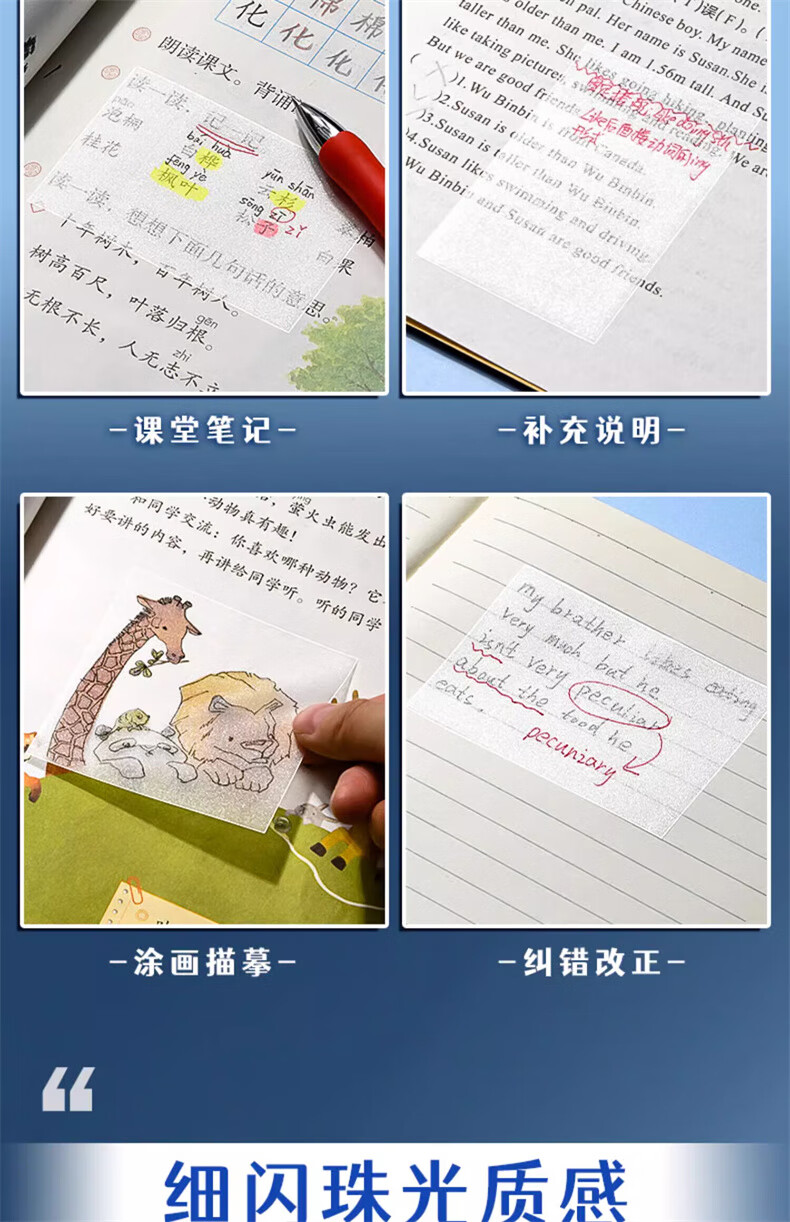 化 棉 棉
化 化 化
朗读课文。背诵
读一读，记一记
泡桐
bái huà
白桦
yún shān
云杉
桂花
fēng yè
枫叶
sōng zǐ
松子 zǐ
白果
读一读，想想下面几句话的意思。
十年树木，百年树人。
树高百尺，叶落归根。
gēn
无根不长，人无志不立
zhì
误(F)。(
Chinese boy. My name
pal. Her name is Susan. She is
taller than me. She likes going hiking, planting
older than me. I am 1.56m tall. And Su
like taking pictures, swimming and reading. We are
But we are good friends
( )1. Wu Binbin is from Canada.
)2. Susan is older than Wu Binbin.
)3. Susan is taller than Wu Binbin.
)4. Susan likes swimming and driving.
Wu Binbin and Susan are good friends.
后面接动词的ing
形式
课堂笔记
补充说明
萤火虫能发出
动物真有趣！
和同学交流：你喜欢哪种动物？它
好要讲的内容，再讲给同学听。听的同学
my brather likes eating
very much but he
isn't very peculiay
about the food he
eats.
pecunzary
涂画描摹
纠错改正
“
细闪珠光质感